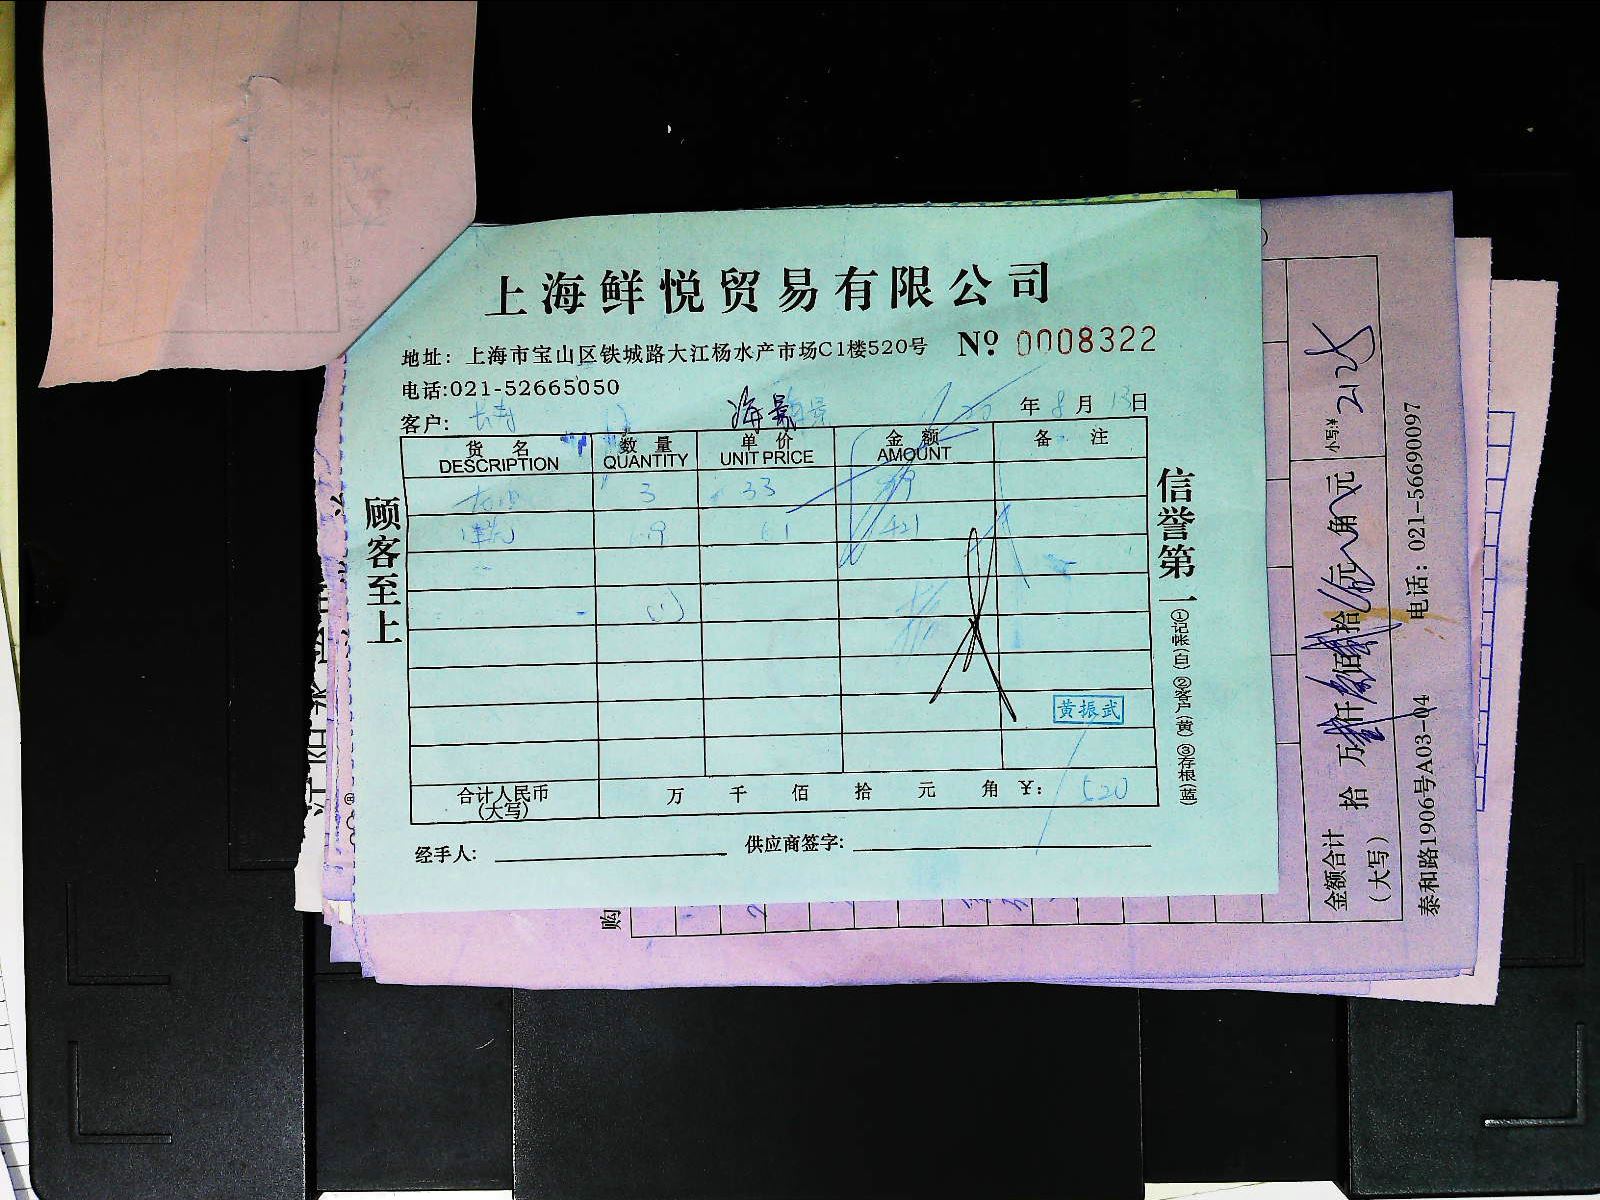 上海鲜悦贸易有限公司
地址：上海市宝山区铁城路大江杨水产市场C1楼520号 Nº 0008322
电话:021-52665050
客户: 海景 年 8 月 13 日
货名 数量 单价 金额 备注
DESCRIPTION QUANTITY UNIT PRICE AMOUNT
3 33 99
6.9 61 421
(1)
黄振武
合计人民币 万 千 佰 拾 元 角 ¥: 520
(大写)
经手人: 供应商签字:
顾客至上
信誉第一
①记帐(白) ②客户(黄) ③存根(蓝)
金额合计 拾 万 仟 佰 拾 元 角 元 小写:¥ 2128
(大写)
泰和路1906号A03-04 电话: 021-56690097
购